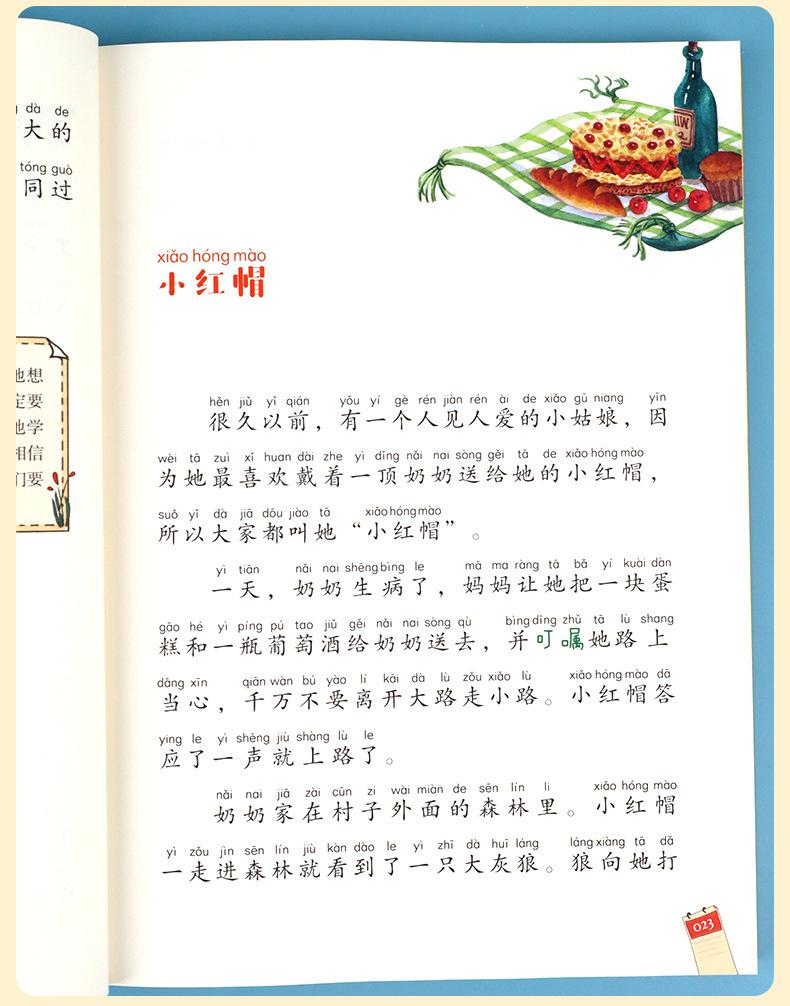 dà de
大的
tóng guò
同过
想
要
她学
相信
们要
WINE
xiǎo hóng mào
小红帽
hěn jiǔ yǐ qián yǒu yí gè rén jiàn rén ài de xiǎo gū niang yīn
很久以前，有一个人见人爱的小姑娘，因
wèi tā zuì xǐ huan dài zhe yì dǐng nǎi nai sòng gěi tā de xiǎo hóng mào
为她最喜欢戴着一顶奶奶送给她的小红帽，
suǒ yǐ dà jiā dōu jiào tā xiǎo hóng mào
所以大家都叫她“小红帽”。
yì tiān nǎi nai shēng bìng le mā ma ràng tā bǎ yí kuài dàn
一天，奶奶生病了，妈妈让她把一块蛋
gāo hé yì píng pú tao jiǔ gěi nǎi nai sòng qù bìng dīng zhǔ tā lù shang
糕和一瓶葡萄酒给奶奶送去，并叮嘱她路上
dāng xīn qiān wàn bú yào lí kāi dà lù zǒu xiǎo lù xiǎo hóng mào dā
当心，千万不要离开大路走小路。小红帽答
ying le yì shēng jiù shàng lù le
应了一声就上路了。
nǎi nai jiā zài cūn zi wài miàn de sēn lín li xiǎo hóng mào
奶奶家在村子外面的森林里。小红帽
yì zǒu jìn sēn lín jiù kàn dào le yì zhī dà huī láng láng xiàng tā dǎ
一走进森林就看到了一只大灰狼。狼向她打
023